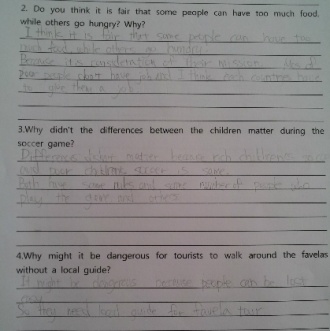 2. Do you think it is fair that some people can have too much food,
while others go hungry? Why?
I think it is fair that some people can have too
much food, while others go hungry.
Because it is consideration of those
poor people don't have job and I think each countries have
to give them a job
3.Why didn't the differences between the children matter during the
soccer game?
Difference didn't matter because rich children's
and poor children's soccer is same.
Both have same rules and same number of people who
play the game and
4.Why might it be dangerous for tourists to walk around the favelas
without a local guide?
It might be dangerous because people can be lost
So they need local guide for favela tour.